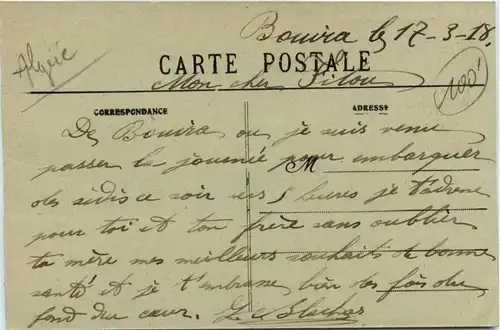 Bouira le 17-3-18.
Algérie
CARTE POSTALE
100!
Mon cher Filou
CORRESPONDANCE
ADRESSE
De Bouira ou je suis venu
passer la journée pour embarquer
M
des sidis ce soir vers 5 heures je t'adresse
pour toi et ton frère sans oublier
ta mère mes meilleurs souhaits de bonne
santé et je t'embrasse bien des fois du
fond du cœur.